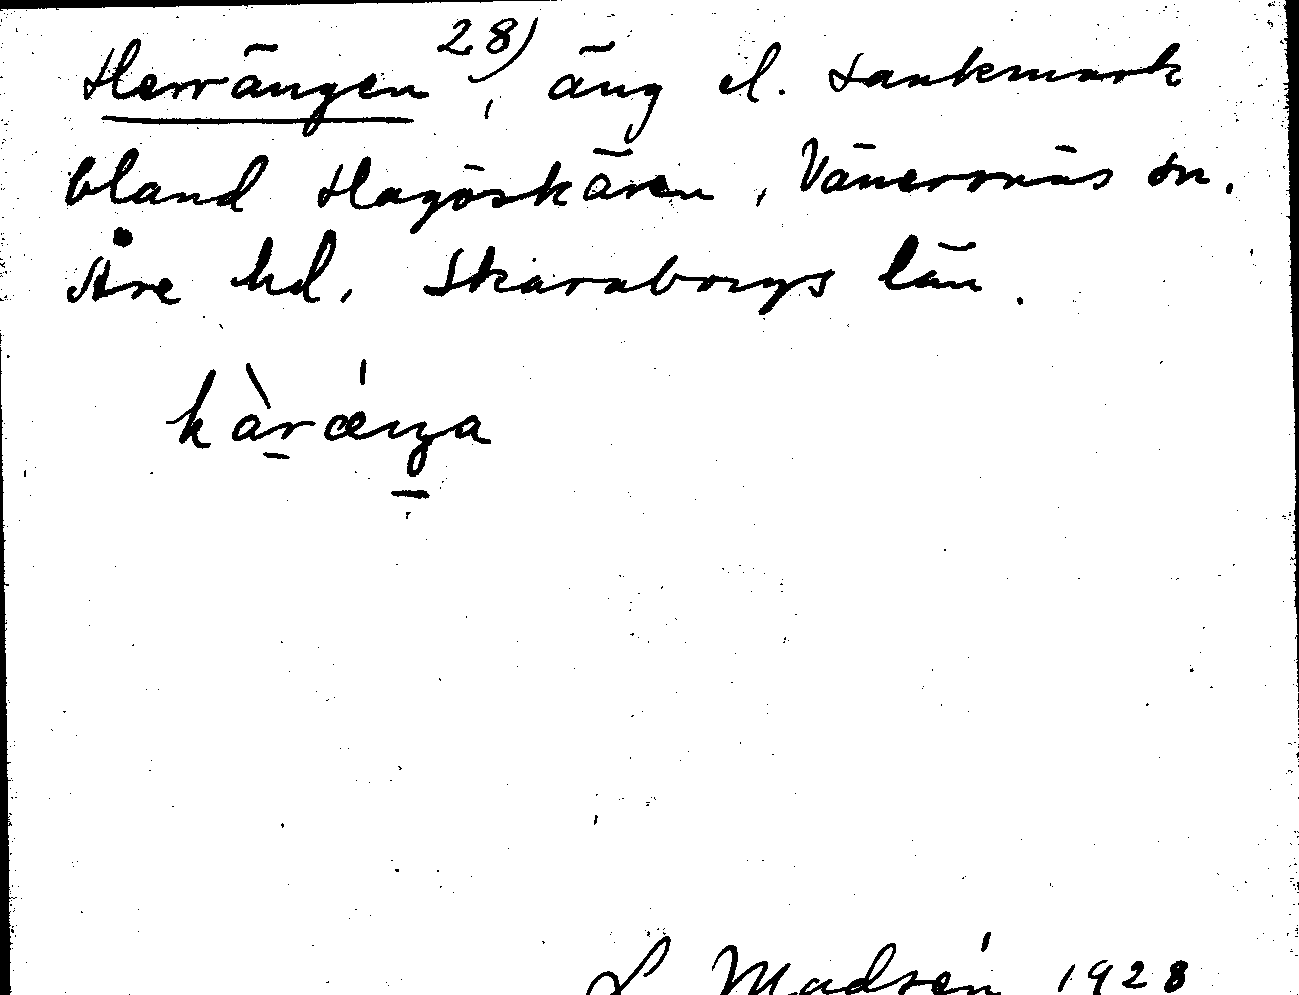 Herrängen 28), äng el. sankmark
bland Hagöskären, Vänersnäs sn.
Åre hd, Skaraborgs län.
hàræ´ŋa
L Madsén 1928